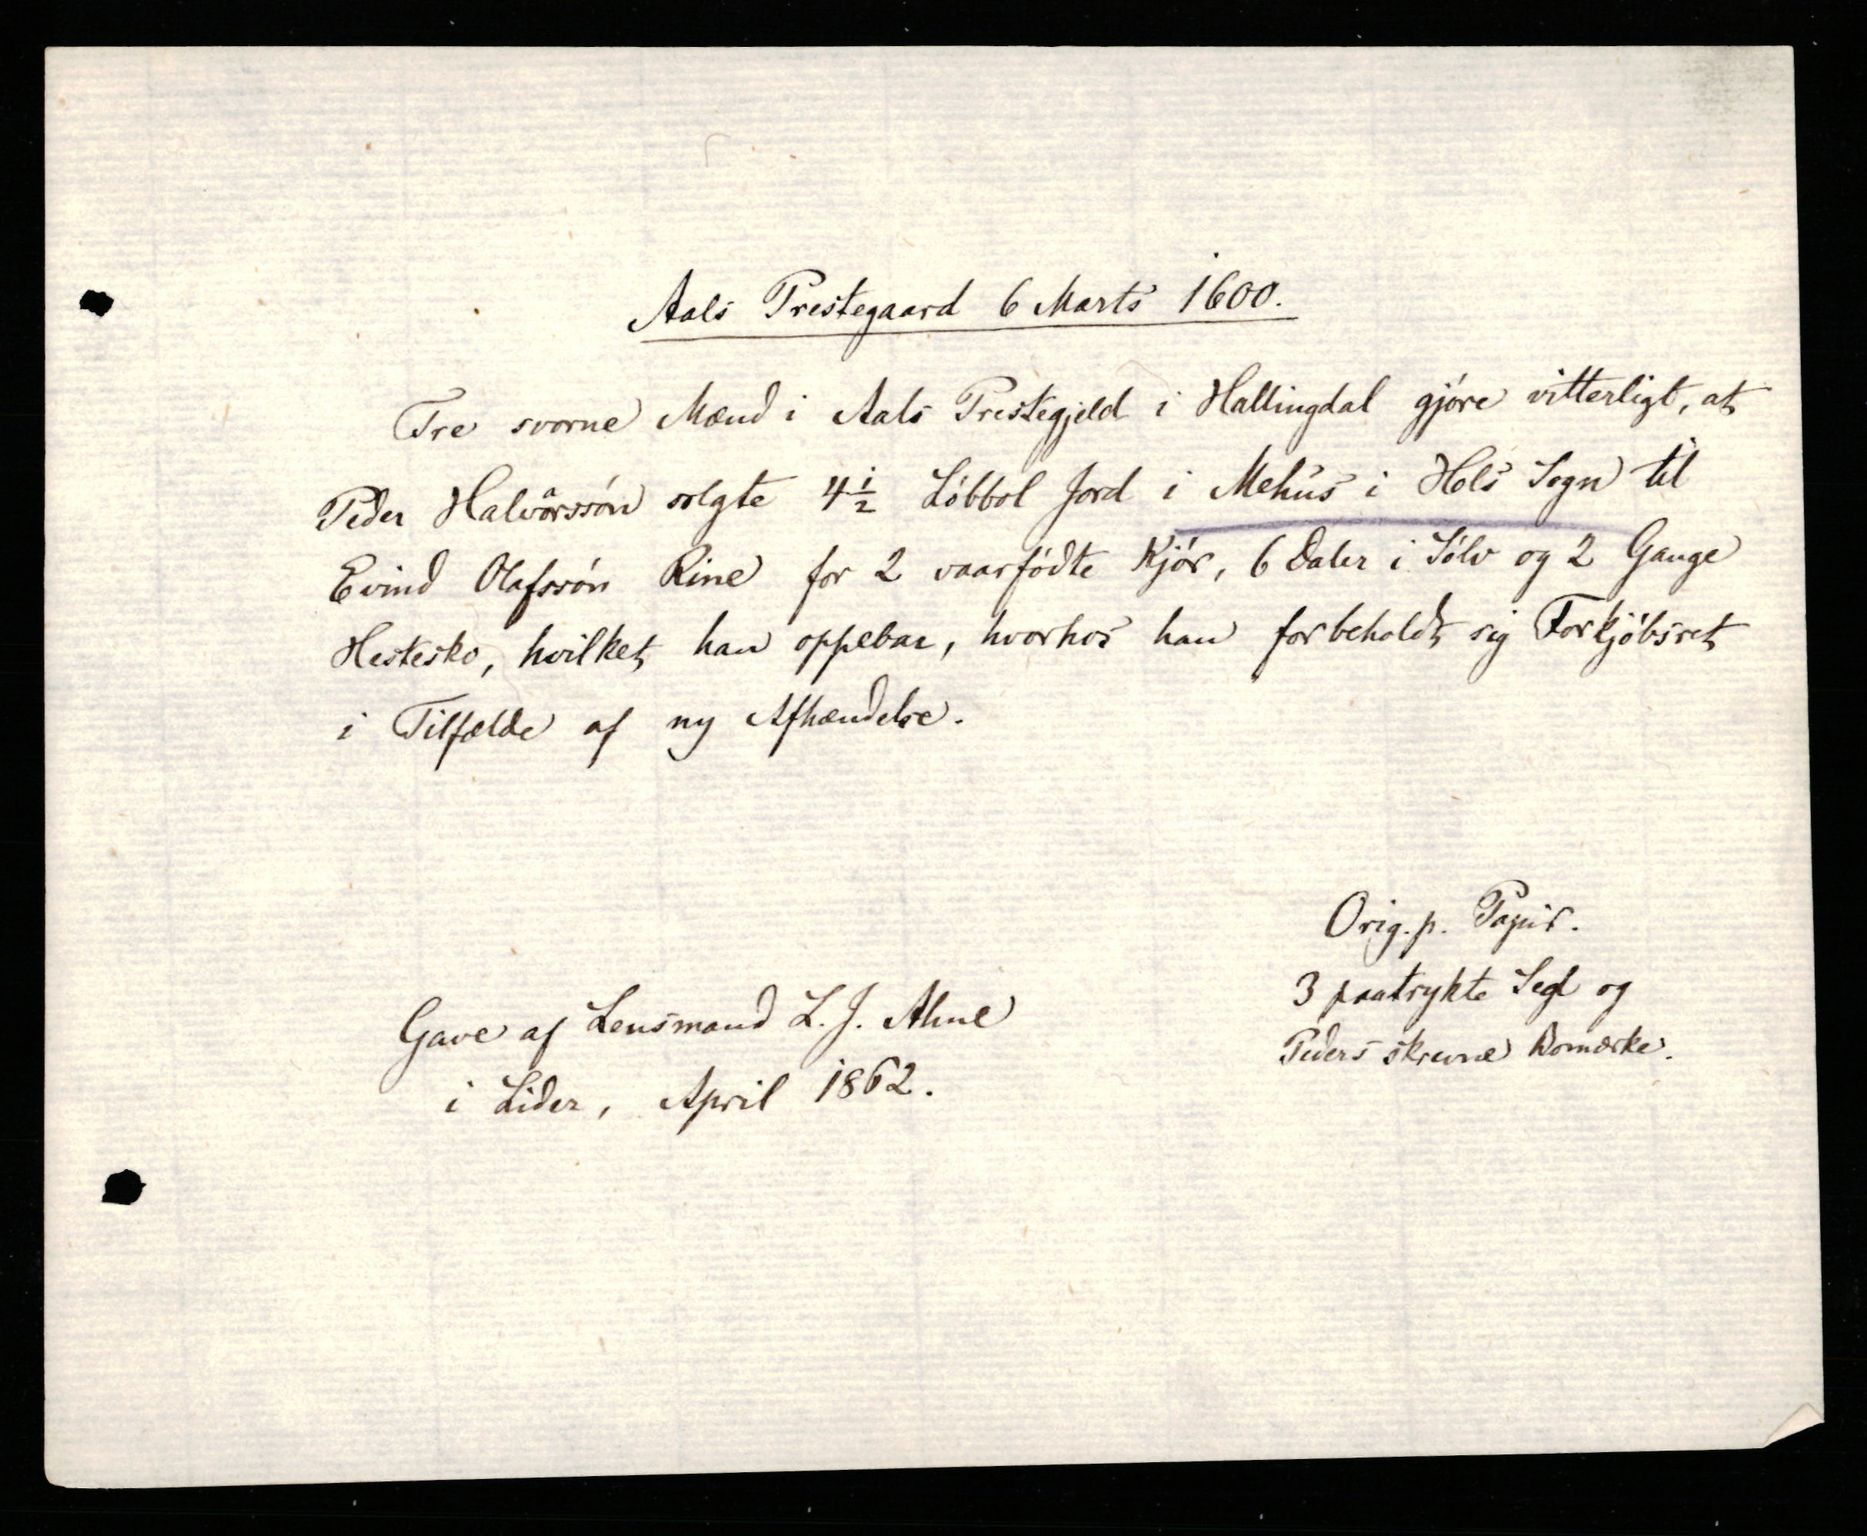 Aals Prestegaard 6 Marts 1600.
Tre svorne Mænd i Aals Prestegjeld i Hallingdal gjöre vitterligt, at
Peder Halvorssön solgte 4 1/2 Löbbol Jord i Mehus i Hols Sogn til
Evind Olafssön Rine for 2 vaarfödte Kjör, 6 Daler i Sölv og 2 Gange
Hestesko, hvilket han oppebar, hvorhos han forbeholdt sig Forkjöbsret
i Tilfælde af ny Afhændelse.
Orig. p. Papir.
3 paatrykte Segl og
Peders skrevne Bomærke.
Gave af Lensmand L. J. Alme
i Lider, April 1862.